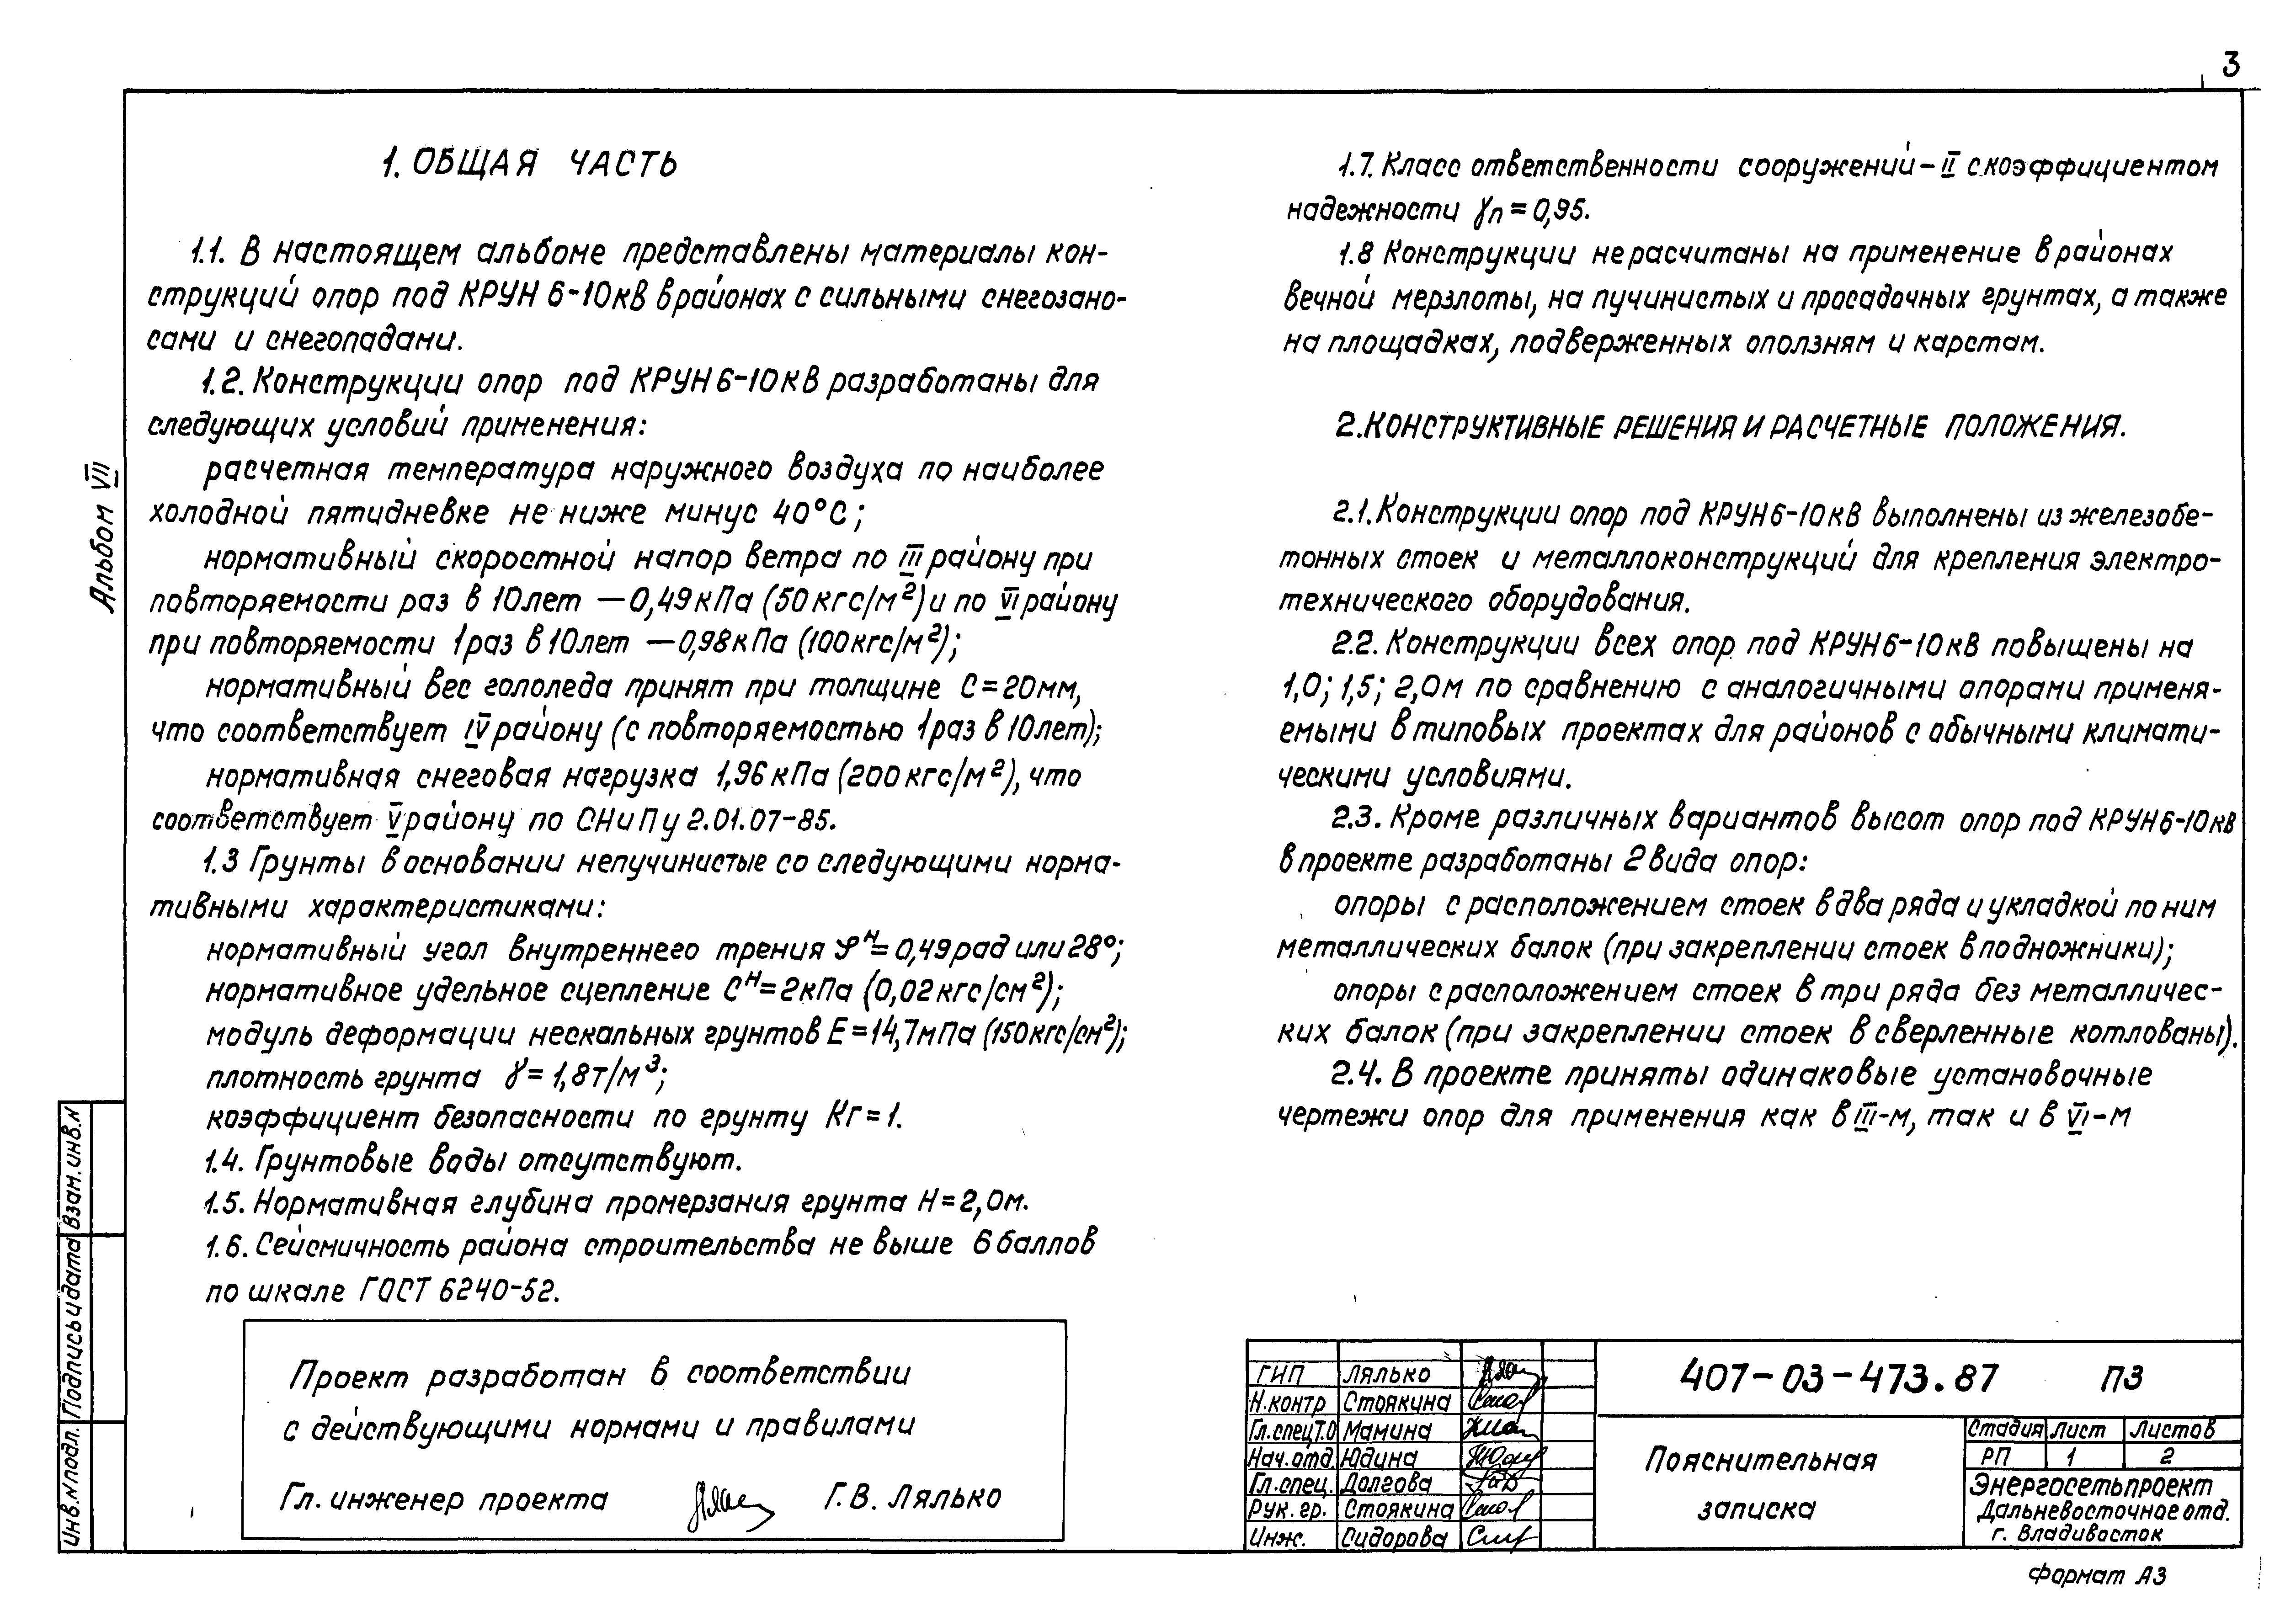 3
1. ОБЩАЯ ЧАСТЬ
1.1. В настоящем альбоме представлены материалы кон-
струкций опор под КРУН 6-10кВ в районах с сильными снегозано-
сами и снегопадами.
1.2. Конструкции опор под КРУН 6-10кВ разработаны для
следующих условий применения:
расчетная температура наружного воздуха по наиболее
холодной пятидневке не ниже минус 40°С;
нормативный скоростной напор ветра по III району при
повторяемости раз в 10 лет — 0,49 кПа (50 кгс/м²) и по VI району
при повторяемости 1 раз в 10 лет — 0,98 кПа (100 кгс/м²);
нормативный вес гололеда принят при толщине С=20мм,
что соответствует IV району (с повторяемостью 1 раз в 10 лет);
нормативная снеговая нагрузка 1,96 кПа (200 кгс/м²), что
соответствует V району по СНиПу 2.01.07-85.
1.3 Грунты в основании непучинистые со следующими норма-
тивными характеристиками:
нормативный угол внутреннего трения φᴴ= 0,49 рад или 28°;
нормативное удельное сцепление Сᴴ=2кПа (0,02 кгс/см²);
модуль деформации нескальных грунтов Е=14,7мПа (150кгс/см²);
плотность грунта γ = 1,8т/м³;
коэффициент безопасности по грунту Кг=1.
1.4. Грунтовые воды отсутствуют.
1.5. Нормативная глубина промерзания грунта Н=2,0м.
1.6. Сейсмичность района строительства не выше 6 баллов
по шкале ГОСТ 6240-52.
Проект разработан в соответствии
с действующими нормами и правилами
Гл. инженер проекта Г.В. Лялько
1.7. Класс ответственности сооружений – II с коэффициентом
надежности γп = 0,95.
1.8 Конструкции не расчитаны на применение в районах
вечной мерзлоты, на пучинистых и просадочных грунтах, а также
на площадках, подверженных оползням и карстам.
2. КОНСТРУКТИВНЫЕ РЕШЕНИЯ И РАСЧЕТНЫЕ ПОЛОЖЕНИЯ.
2.1. Конструкции опор под КРУН 6-10кВ выполнены из железобе-
тонных стоек и металлоконструкций для крепления электро-
технического оборудования.
2.2. Конструкции всех опор под КРУН 6-10кВ повышены на
1,0; 1,5; 2,0м по сравнению с аналогичными опорами применя-
емыми в типовых проектах для районов с обычными климати-
ческими условиями.
2.3. Кроме различных вариантов высот опор под КРУН 6-10кВ
в проекте разработаны 2 вида опор:
опоры с расположением стоек в два ряда и укладкой по ним
металлических балок (при закреплении стоек в подножники);
опоры с расположением стоек в три ряда без металличес-
ких балок (при закреплении стоек в сверленные котлованы).
2.4. В проекте приняты одинаковые установочные
чертежи опор для применения как в III-м, так и в VI-м
Альбом VII
Инв.N подл. Подпись и дата Взам.инв.N
ГИП Лялько
Н.контр Стоякина
Гл.спец Т.О Мамина
Нач.отд. Юдина
Гл.спец. Долгова
Рук.гр. Стоякина
Инж. Сидорова
407-03-473.87 ПЗ
Пояснительная
записка
Стадия Лист Листов
РП 1 2
Энергосетьпроект
Дальневосточное отд.
г. Владивосток
Формат А3